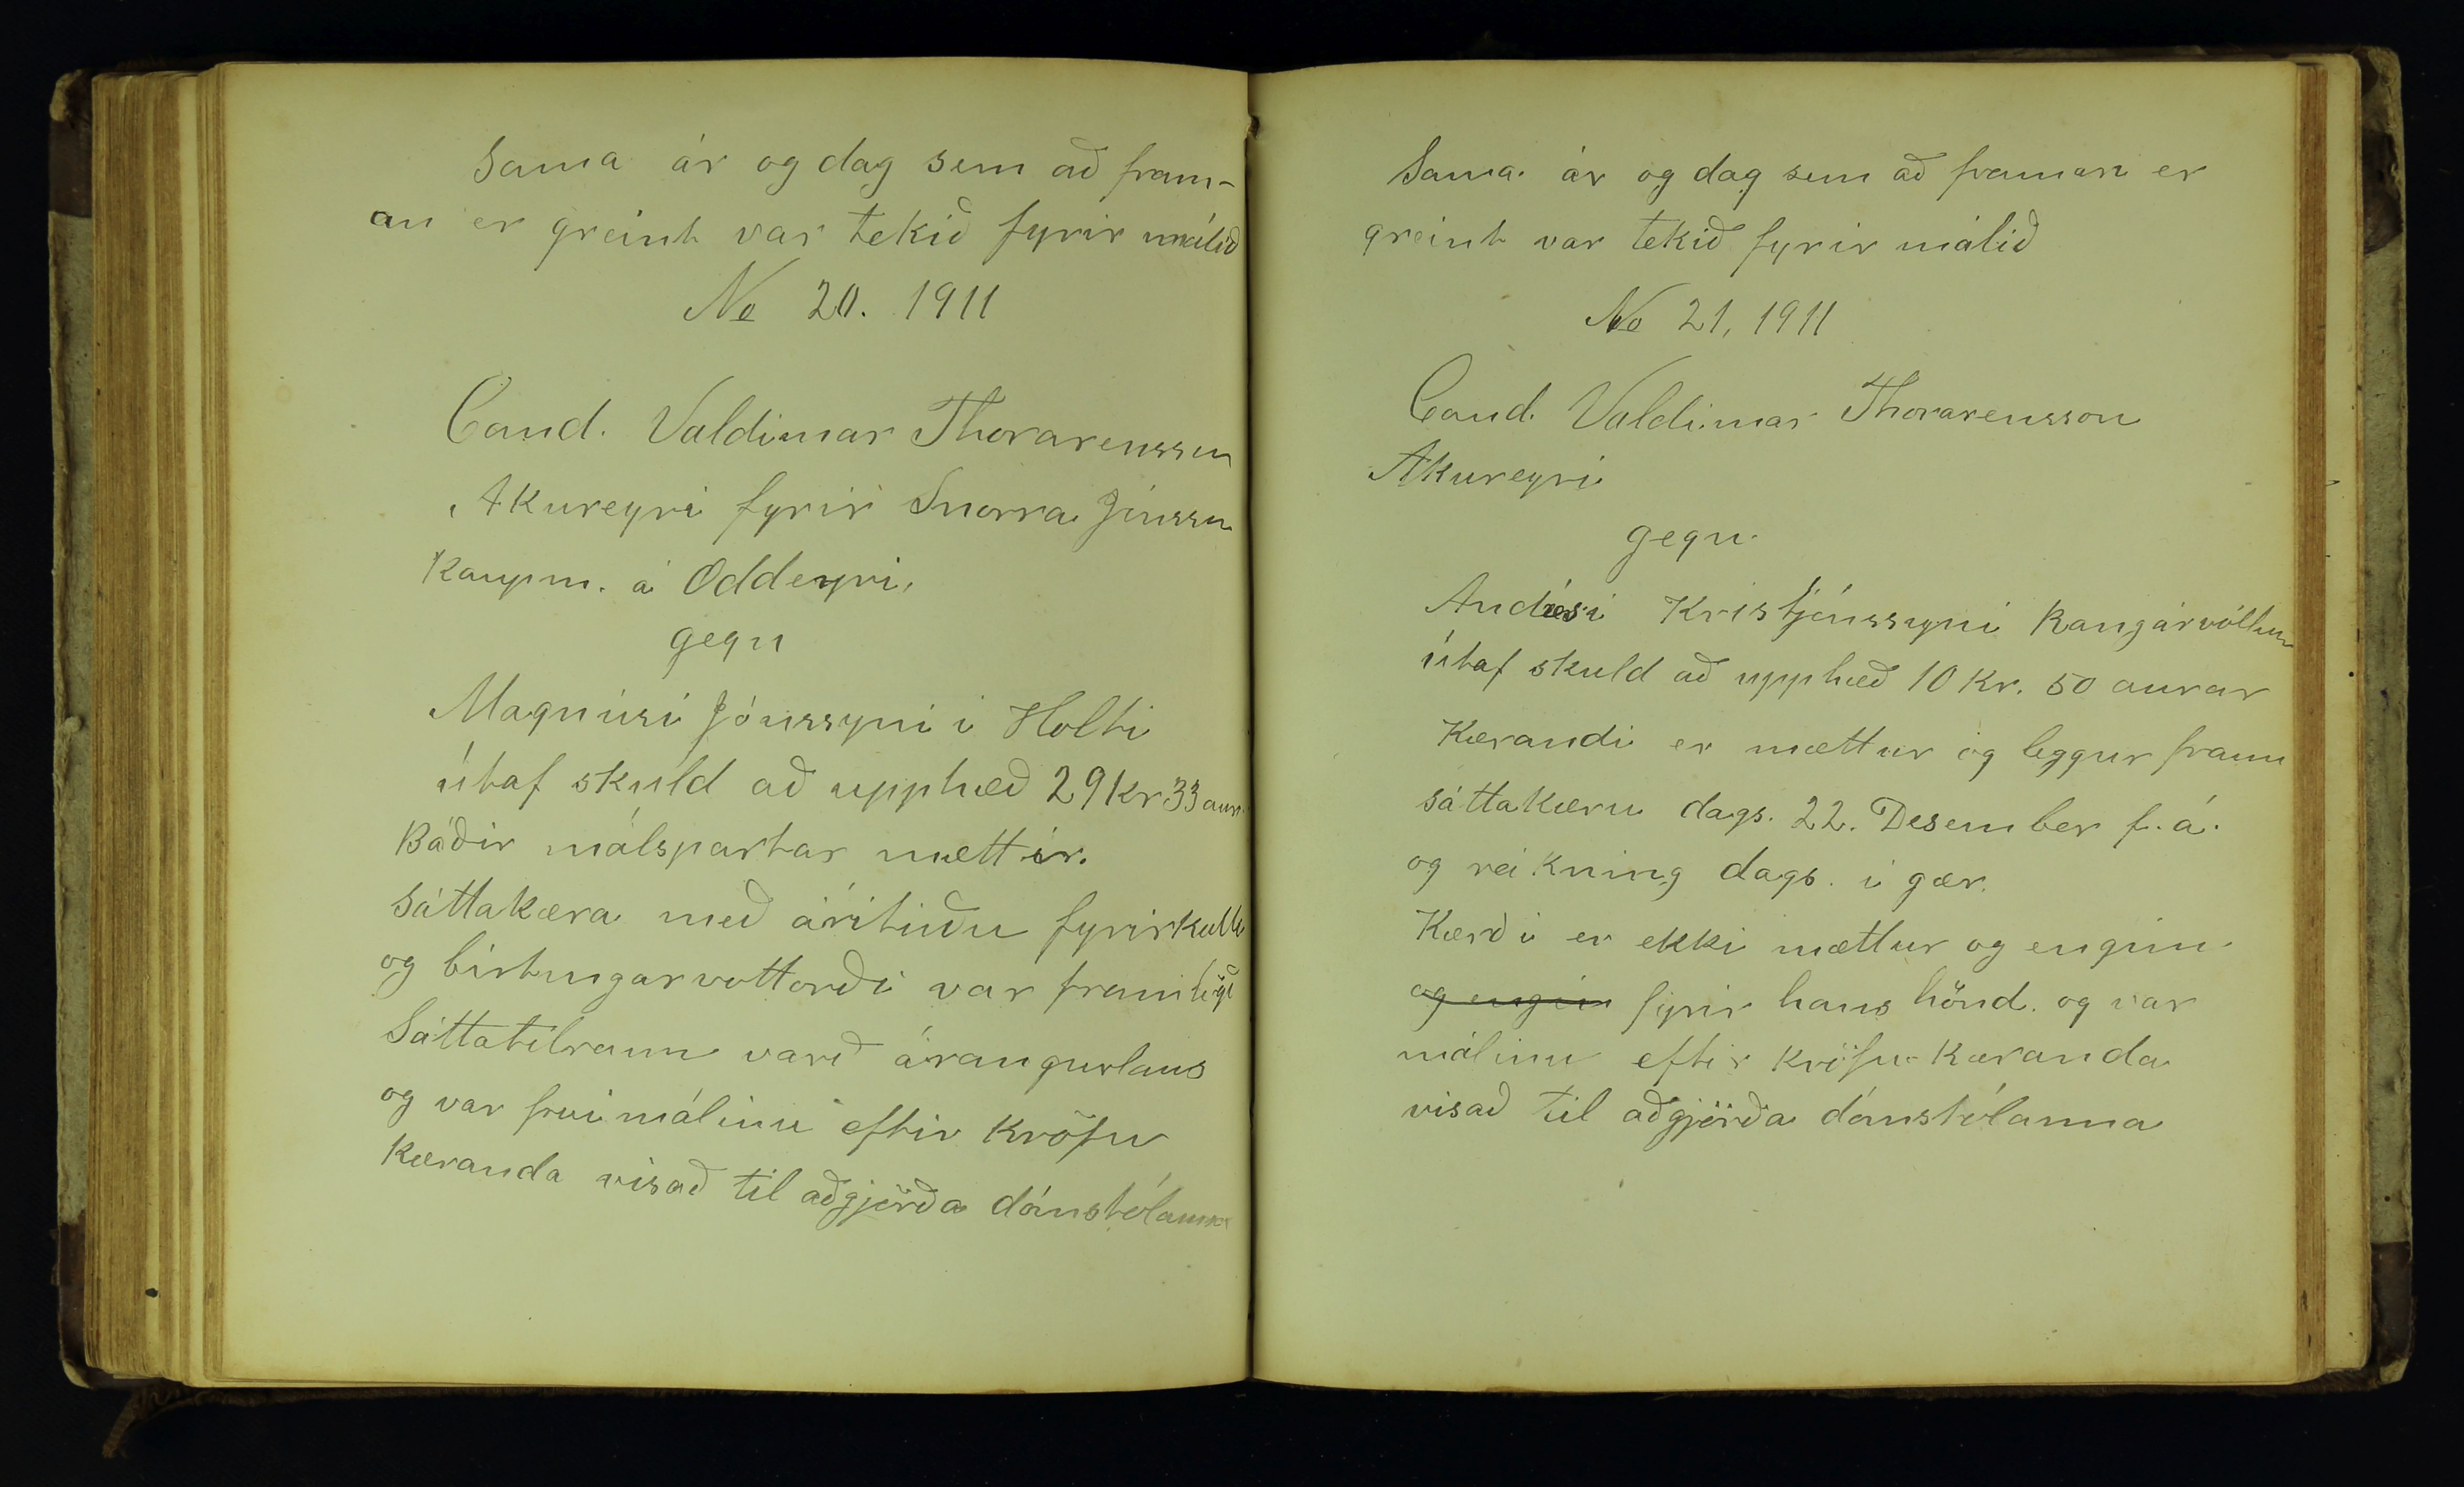 Sama ár og dag sem að fram-
an er greint var tekið fyrir málið
No 20. 1911
Cand. Valdimar Thorarenssen
Akureyri fyrir Snorra Jónsson
Kaupm. á Oddeyri,
gegn
Magnúsi Jónssyni í Holti
útaf skuld að upphæð 29 kr 33 aur.
Báðir málspartar mættir.
Sáttakæra með árituðu fyrirkalli
og birtingarvottorði var framlögð
Sáttatilraun varð árangurlaus
og var því málinu eftir kröfu
Kæranda vísað til aðgjörða dómstólanna
Sama ár og dag sem að framan er
greint var tekið fyrir málið
No 21, 1911
Cand. Valdimar Thorarensson
Akureyri
gegn
Andrési Kristjónssyni Rangárvöllum
útaf skuld að upphæð 10 Kr. 50 aurar
Kærandi er mættur og leggur fram
sáttakæru dags. 22. Desember f. á.
og reikning dags. í gær.
Kærði er ekki mættur og enginn
og engin fyrir hans hönd. og var
málinu eftir kröfu Kæranda
vísað til aðgjörða dómstólanna